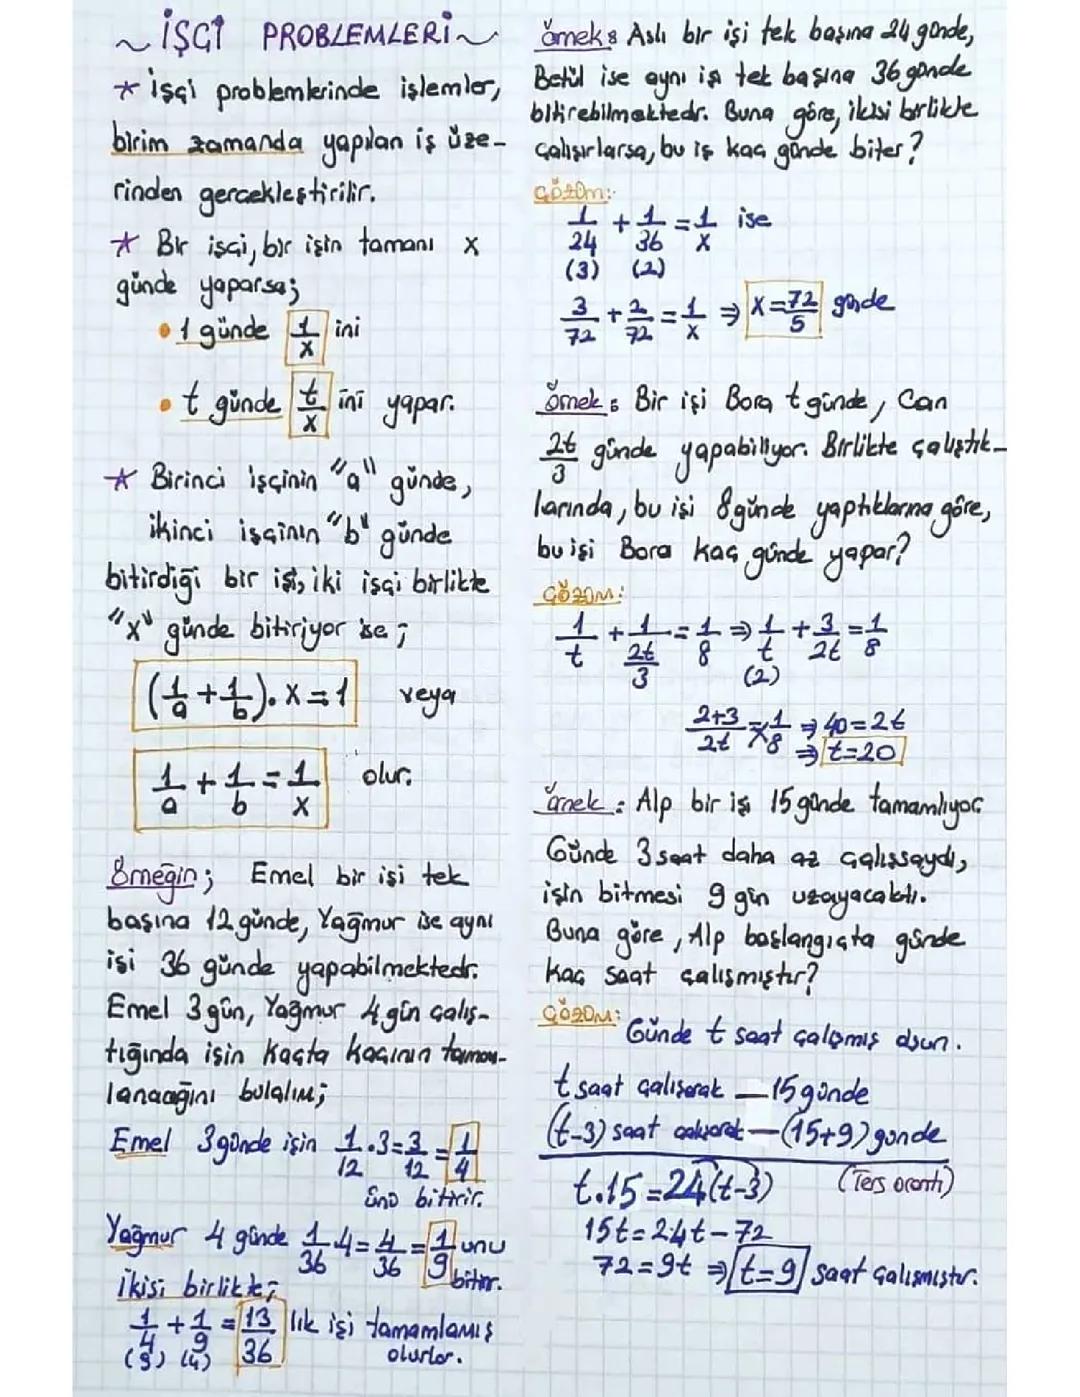 ~ İŞÇİ PROBLEMLERİ ~
* İşçi problemlerinde işlemler,
birim zamanda yapılan iş üze-
rinden gerçekleştirilir.
* Bir işçi, bir işin tamamı x
günde yaparsa;
• 1 günde 1/x ini
• t günde t/x ini yapar.
* Birinci işçinin "a" günde,
ikinci işçinin "b" günde
bitirdiği bir işi, iki işçi birlikte
"x" günde bitiriyor ise;
(1/a + 1/b). x = 1 veya
1/a + 1/b = 1/x olur.
Örneğin; Emel bir işi tek
başına 12 günde, Yağmur ise aynı
işi 36 günde yapabilmektedir.
Emel 3 gün, Yağmur 4 gün çalış-
tığında işin kaçta kaçının tamam-
lanacağını bulalım;
Emel 3 günde işin 1/12 . 3 = 3/12 = 1/4
ünü bitirir.
Yağmur 4 günde 1/36 . 4 = 4/36 = 1/9 unu
bitirir.
İkisi birlikte;
1/4 + 1/9 = 13/36 lık işi tamamlamış
(9) (4) olurlar.
Örnek: Aslı bir işi tek başına 24 günde,
Betül ise aynı işi tek başına 36 günde
bitirebilmektedir. Buna göre, ikisi birlikte
çalışırlarsa, bu iş kaç günde biter?
Çözüm:
1/24 + 1/36 = 1/x ise
(3) (2)
3/72 + 2/72 = 1/x ⇒ x = 72/5 günde
Örnek: Bir işi Bora t günde, Can
2t/3 günde yapabiliyor. Birlikte çalıştık-
larında, bu işi 8 günde yaptıklarına göre,
bu işi Bora kaç günde yapar?
Çözüm:
1/t + 1/(2t/3) = 1/8 ⇒ 1/t + 3/2t = 1/8
(2)
2+3/2t = 1/8 ⇒ 40 = 2t
⇒ t = 20
Örnek: Alp bir işi 15 günde tamamlıyor.
Günde 3 saat daha az çalışsaydı,
işin bitmesi 9 gün uzayacaktı.
Buna göre, Alp başlangıçta günde
kaç saat çalışmıştır?
Çözüm:
Günde t saat çalışmış olsun.
t saat çalışarak — 15 günde
(t-3) saat çalışarak — (15+9) günde
t.15 = 24(t-3) (Ters orantı)
15t = 24t - 72
72 = 9t ⇒ t = 9 saat çalışmıştır.